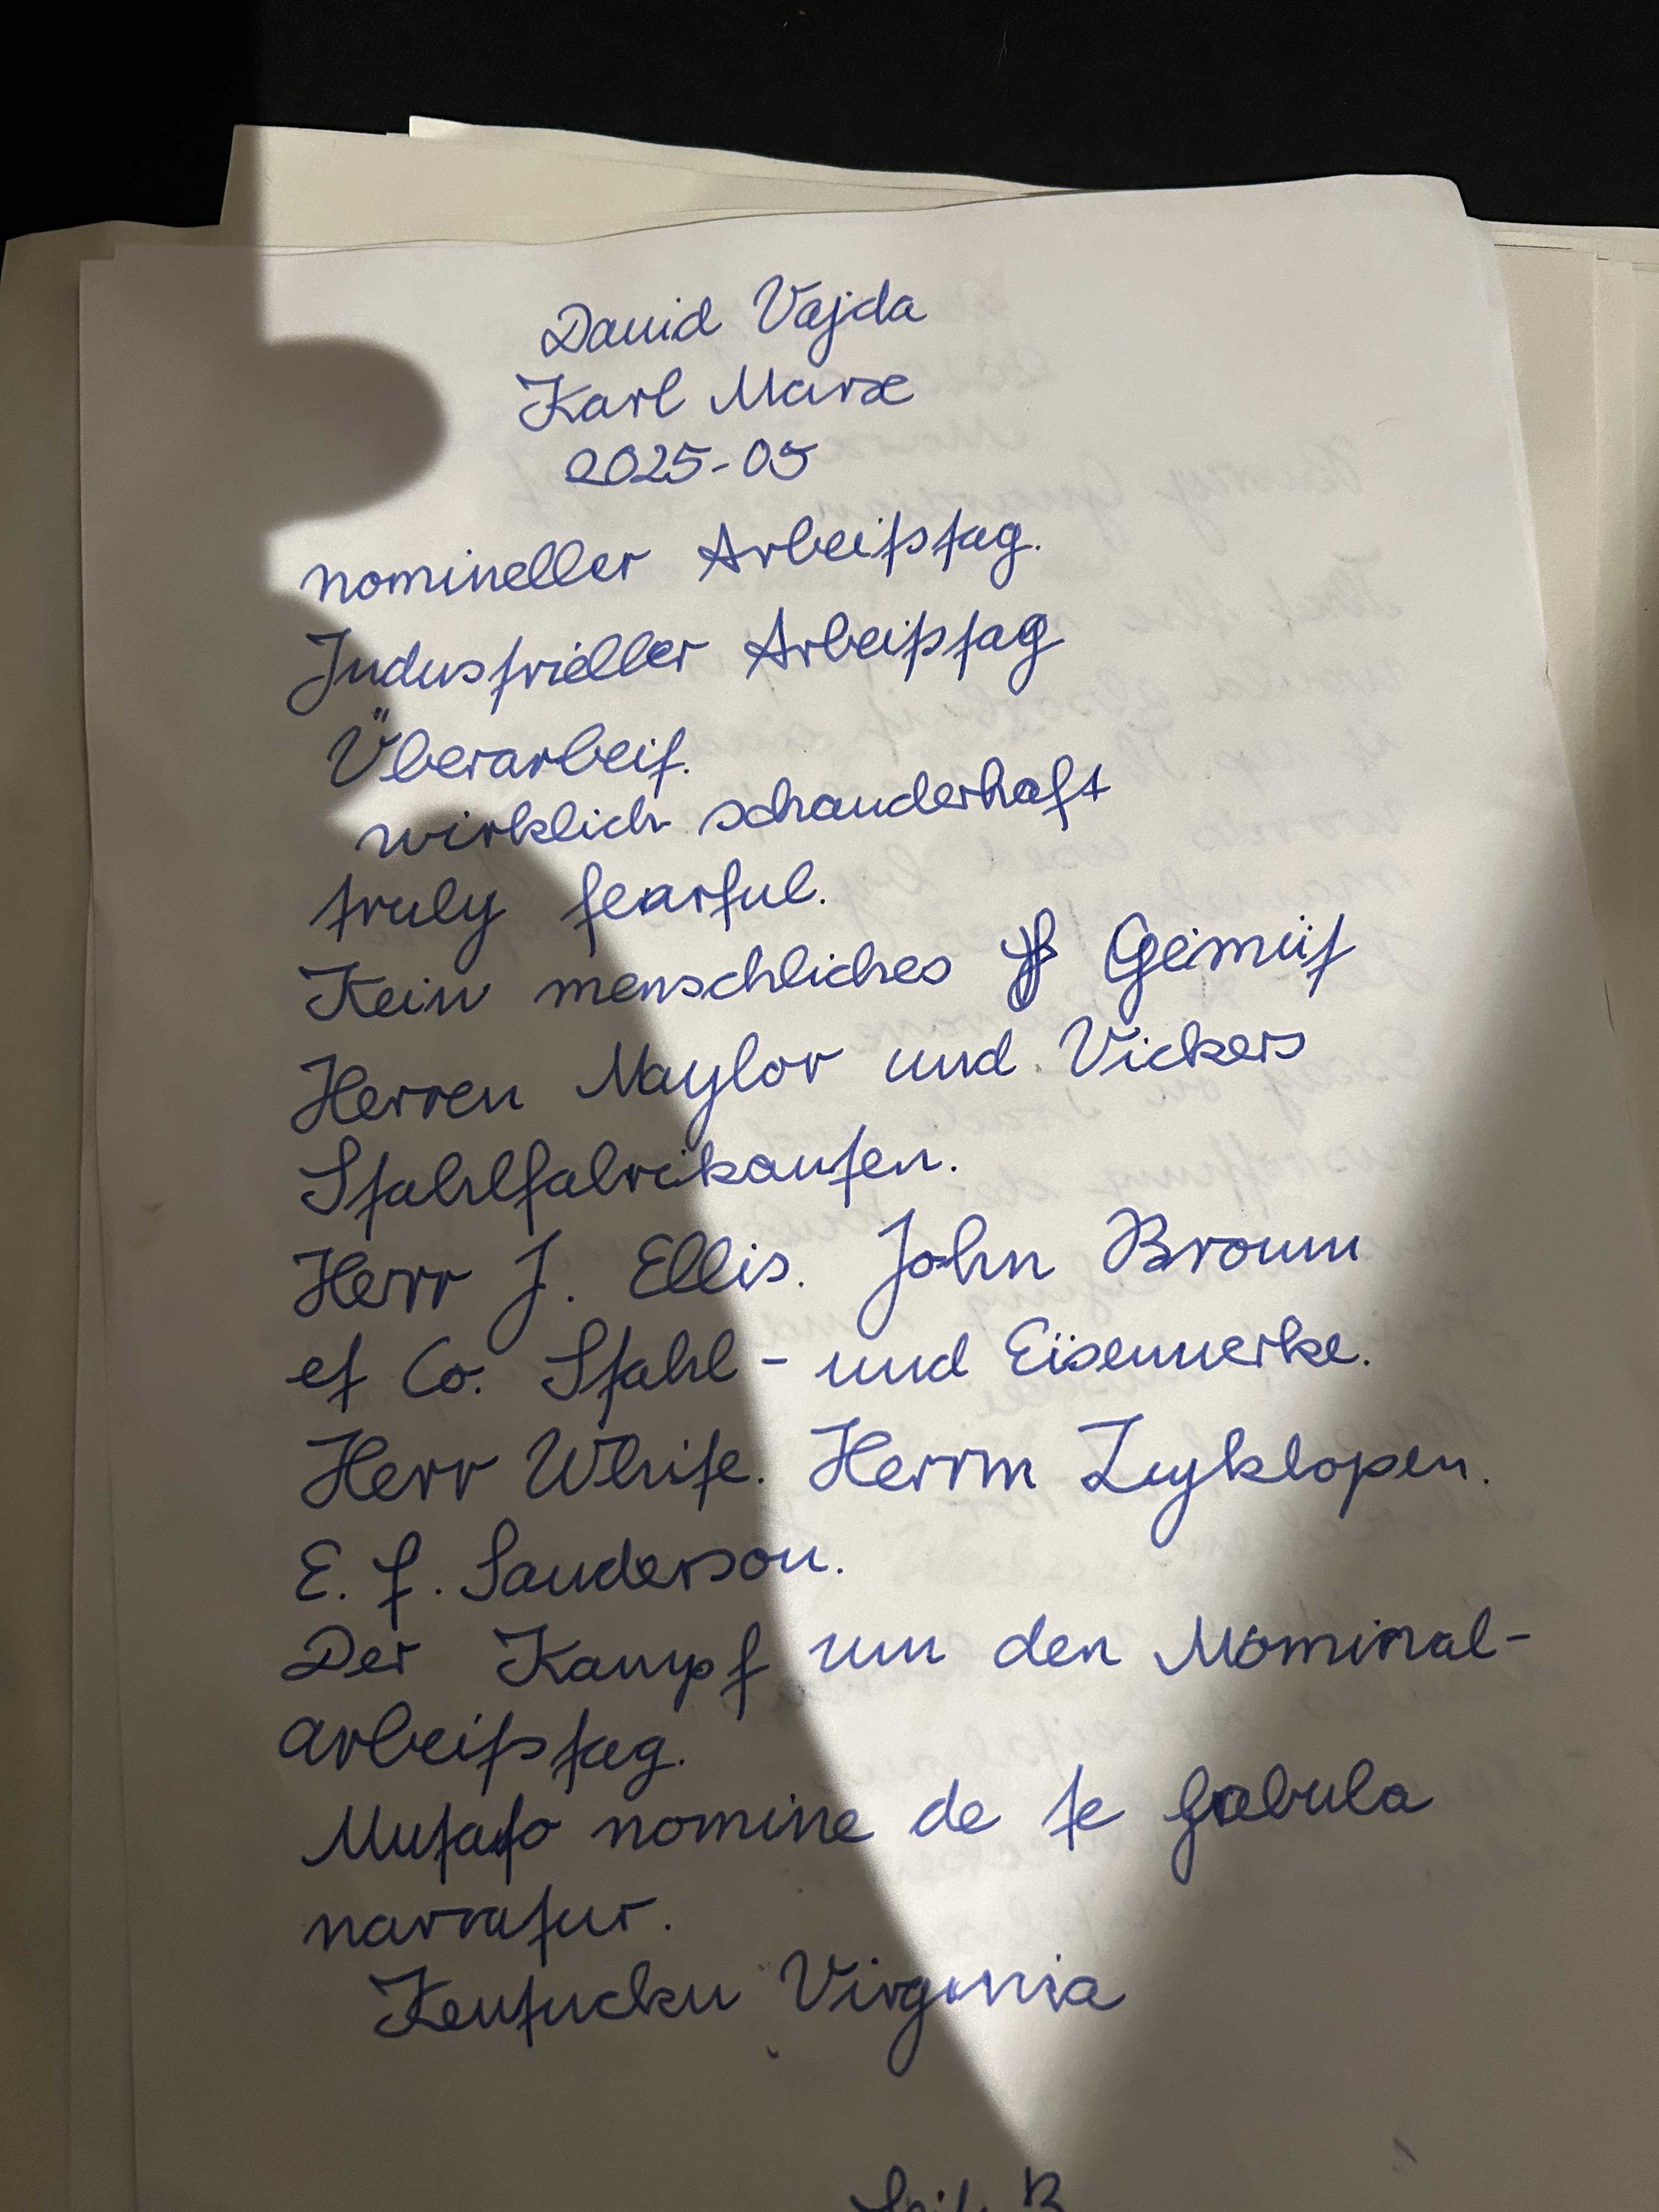 David Vajda
Karl Marx
2025-05
nomineller Arbeitstag.
Industrieller Arbeitstag
Überarbeit.
wirklich schauderhaft
truly fearful.
Kein menschliches Gemüt
Herren Naylor und Vickers
Stahlfabrikanten.
Herr J. Ellis. John Brown
et Co. Stahl- und Eisenwerke.
Herr White. Herrm Zyklopen.
E. f. Sanderson.
Der Kampf um den Nominal-
arbeitstag.
Mutato nomine de te fabula
narratur.
Kentucku Virginia